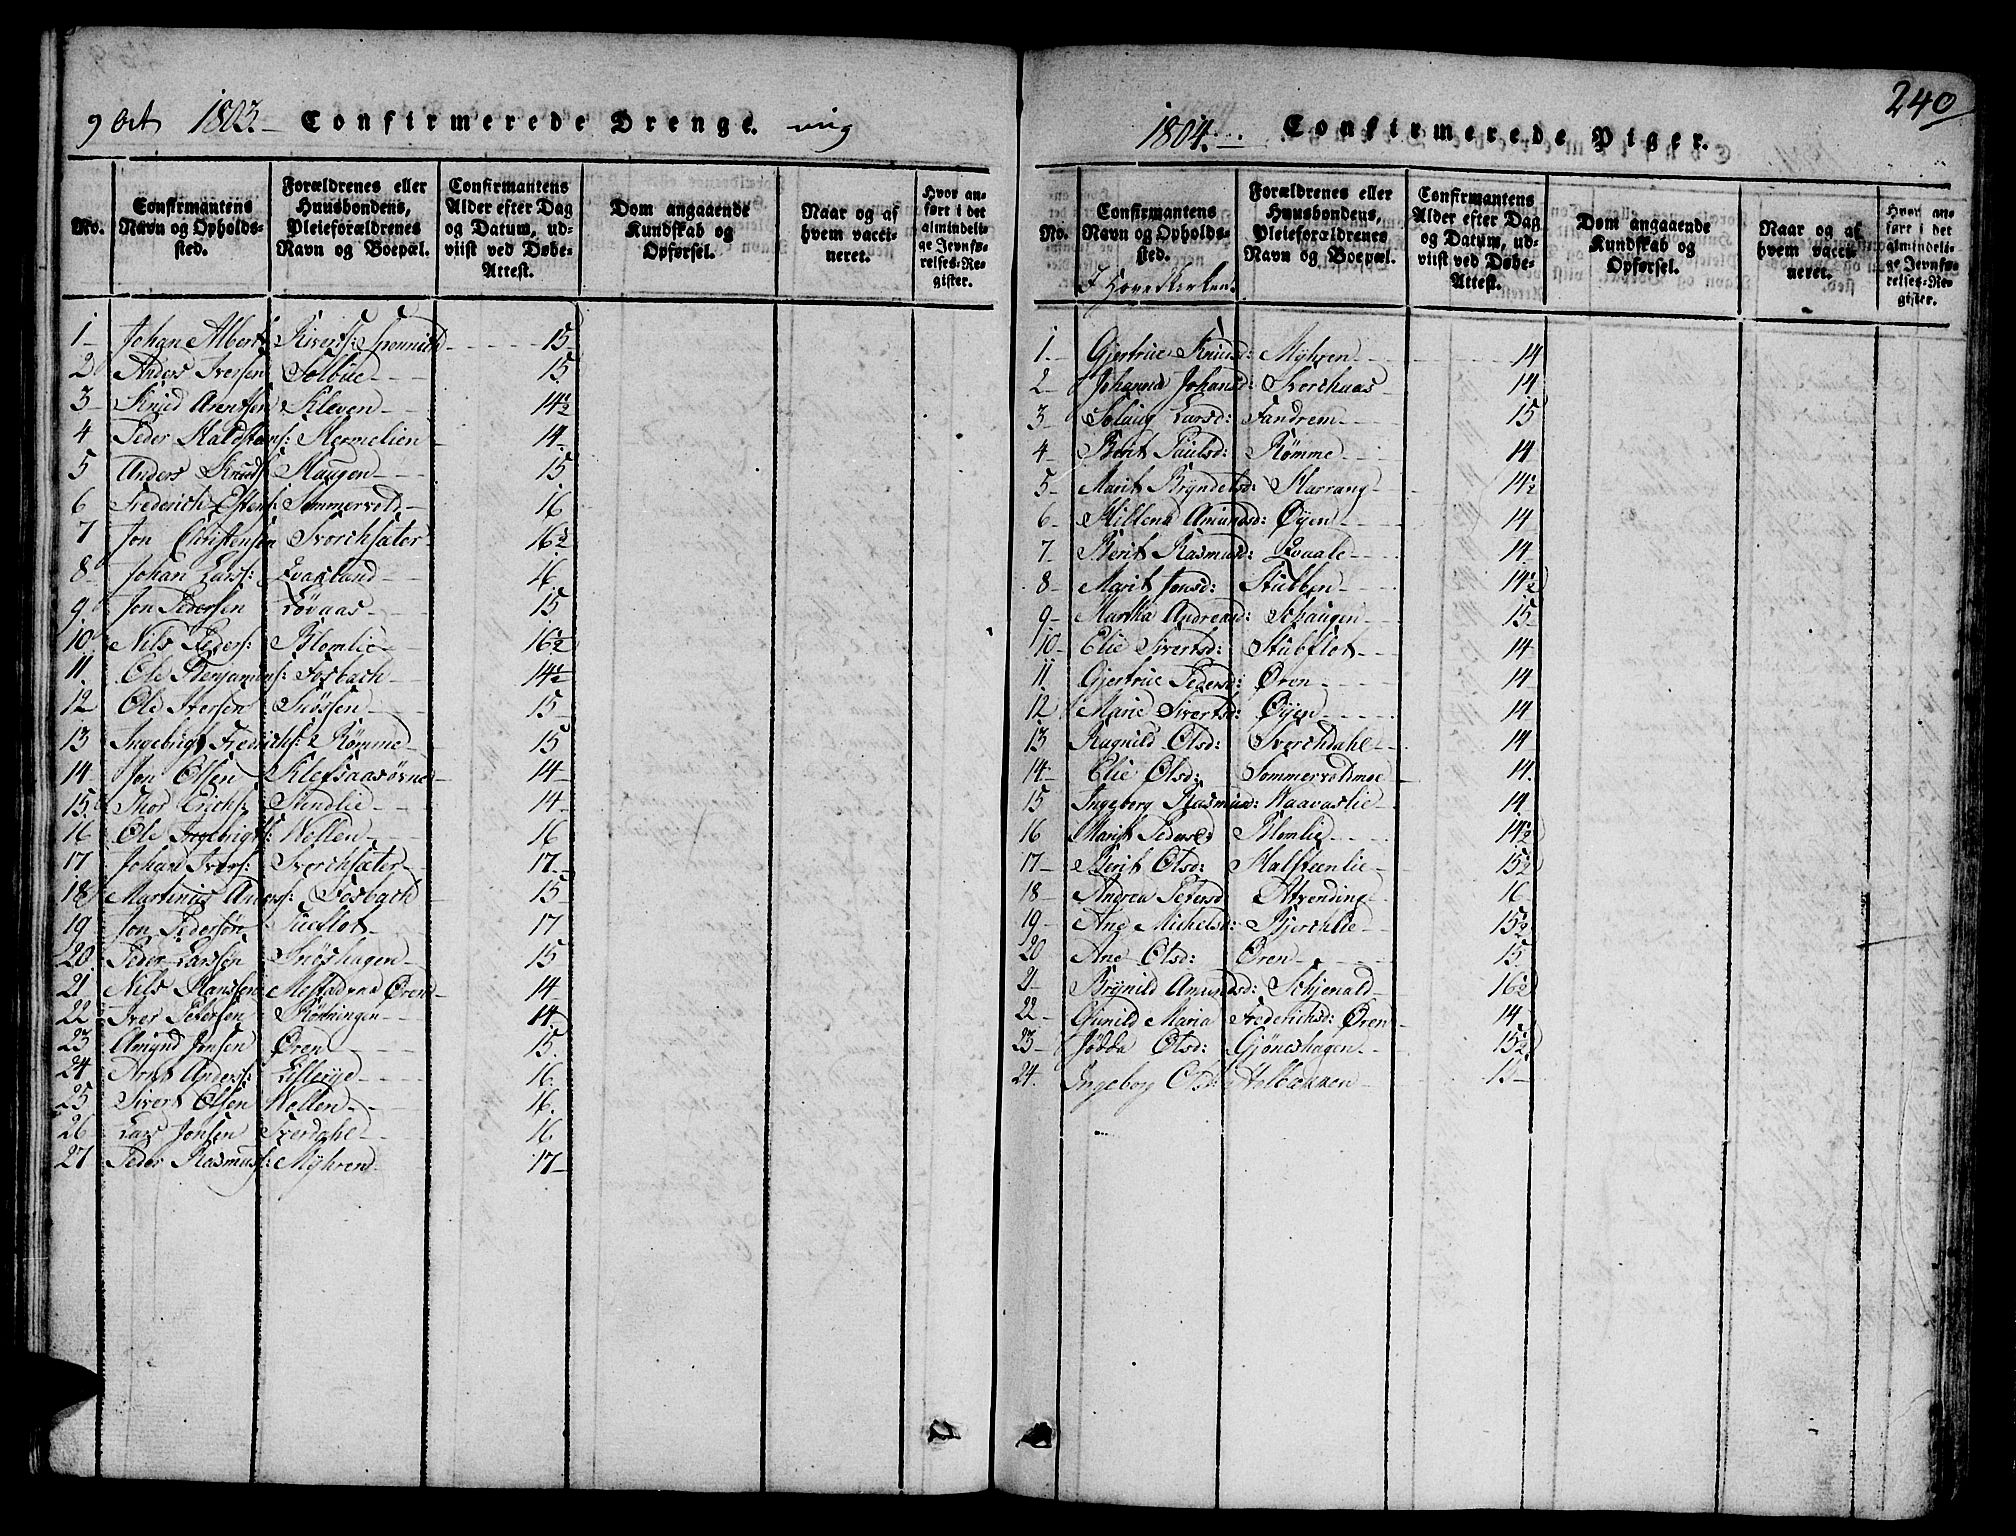 9 Oct 1803. Confirmerede Drenge.
No.
Confirmantens Navn og Opholdssted.
Forældrenes eller Huusbondens, Pleieforældrenes Navn og Boepæl.
Confirmantens Alder efter Dag og Datum, udviist ved Døbe-Attest.
Dom angaaende Kundskab og Opførsel.
Naar og af hvem vaccineret.
Hvor anført i det almindelige Jevnførelses-Register.
1 Johan Albert Sivertf:
2 Anders Iversen Solbue 15
3 Knud Arentsen Kleven 14½
4 Peder Haldstens: Mermelien 14
5 Anders Knuds Haugen 15
6 Frederich Estens: Sommervold 16
7 Jon Christensen Svorchsæter 16½
8 Johan Lars: 16
9 Jon Pedersen Løvaas 15
10 Nils Peders: Blomlie 16½
11 Ole Benjamins: Fosbach 14½
12 Ole Iversen 15
13 Ingebrigt Fredrichs: Rømme 15
14 Jon Olsen Klefsaasøvne 14
15 Thor Erichs: Stendlie 14
16 Ole Ingebrigts: Wollen 16
17 Johan Ivers: Svorchsæter 17
18 Martinus Anders: Fosbach 15
19 Jon Pedersøn 17
20 Peder Larssøn 15
21 Nils Hansen Øren 14
22 Iver Petersen 14
23 Amund Jonsen Øren 15
24 Arnt Anders: Lillerye 16
25 Sivert Olsen Wollen 16
26 Lars Jonsen Sverdahl 16
27 Peder Rasmus: Myhren 17
240
1804. Confirmerede Piger.
No.
Confirmantens Navn og Opholdssted.
I Hovedkirken.
Forældrenes eller Huusbondens, Pleieforældrenes Navn og Boepæl.
Confirmantens Alder efter Dag og Datum, udviist ved Døbe-Attest.
Dom angaaende Kundskab og Opførsel.
Naar og af hvem vaccineret.
Hvor anført i det almindelige Jevnførelses-Register.
1 Gjertrue Knuds: Myhren 14
2 Johanna Johansd: 14
3 Solaug Larsd: Fandrem 15
4 Berit Paulsd: Rømme 14
5 Marit Bryndelsd: Harrang 14½
6 Hillena Amundsd: Øyen 14
7 Berit Rasmusd: Qvaale 14
8 Marit Jonsd: Stubben 14½
9 Martha Andreasd: 15
10 Elie Sivertsd: Stubflot 14
11 Gjertrue Pedersd: Øren 14
12 Marie Sivertsd: Øyen 14
13 Ragnild Olsd: Sverchdahl 14
14 Elie Olsd: Sommervoldmoe 14
15 Ingeborg Rasmusd: Waavaslie 14
16 Marit Pedersd: Blomlie 14½
17 Berit Olsd: Halsteenlie 15½
18 Andrea Petersd 16
19 Ane Michelsd: 15½
20 Ane Olsd: Øren 15
21 Brynild Amundsd: Schjenald 16½
22 Gunild Maria Frederichsd: Øren 14
23 Jødda Olsd: Gjøneshagen 15½
24 Ingeborg Olsd 15